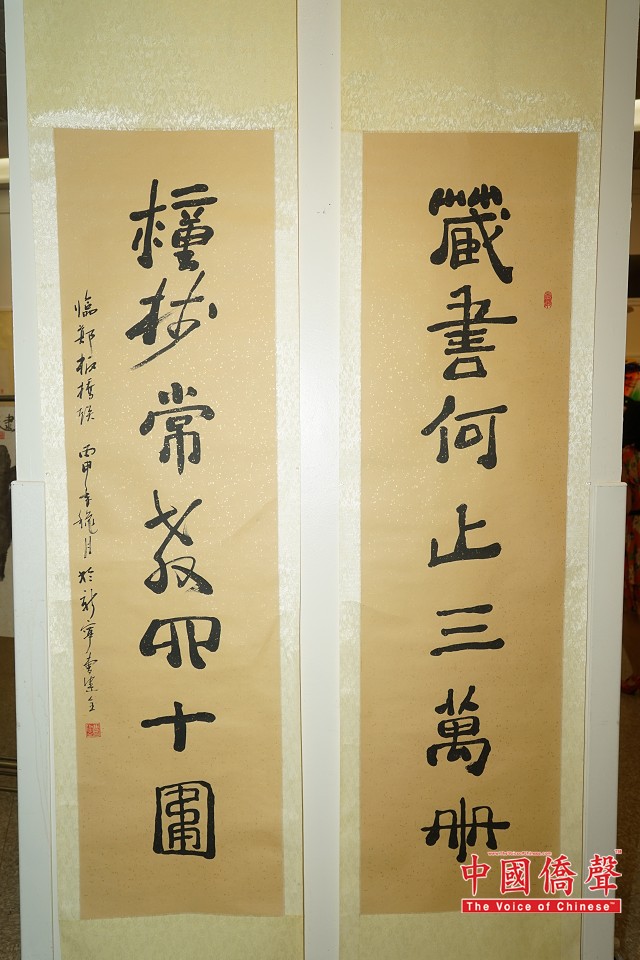 藏書何止三萬册
種樹常教四十圍
臨鄭板橋联 丙申年穐月於新寧
中國僑聲
The Voice of Chinese™